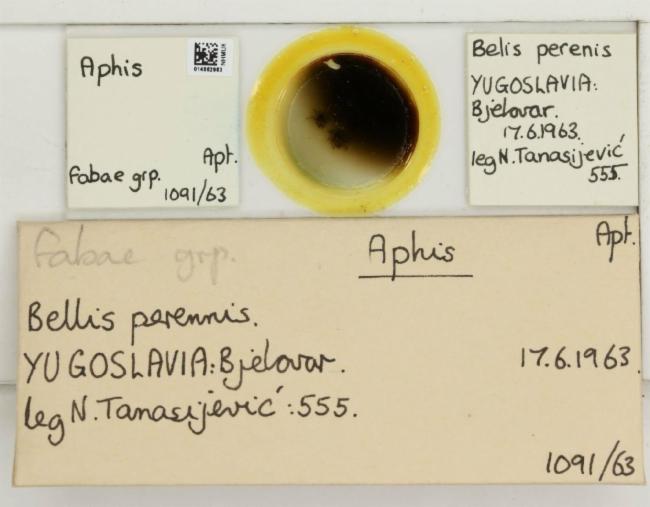 Aphis
NHMUK
014882983
Apt.
Fabae grp.
1091/63
Belis perenis
YUGOSLAVIA:
Bjelovar.
17.6.1963.
leg N. Tanasijević
555.
Fabae grp.
Aphis
Apt.
Bellis perennis.
YUGOSLAVIA: Bjelovar.
17.6.1963.
leg N. Tanasijević: 555.
1091/63